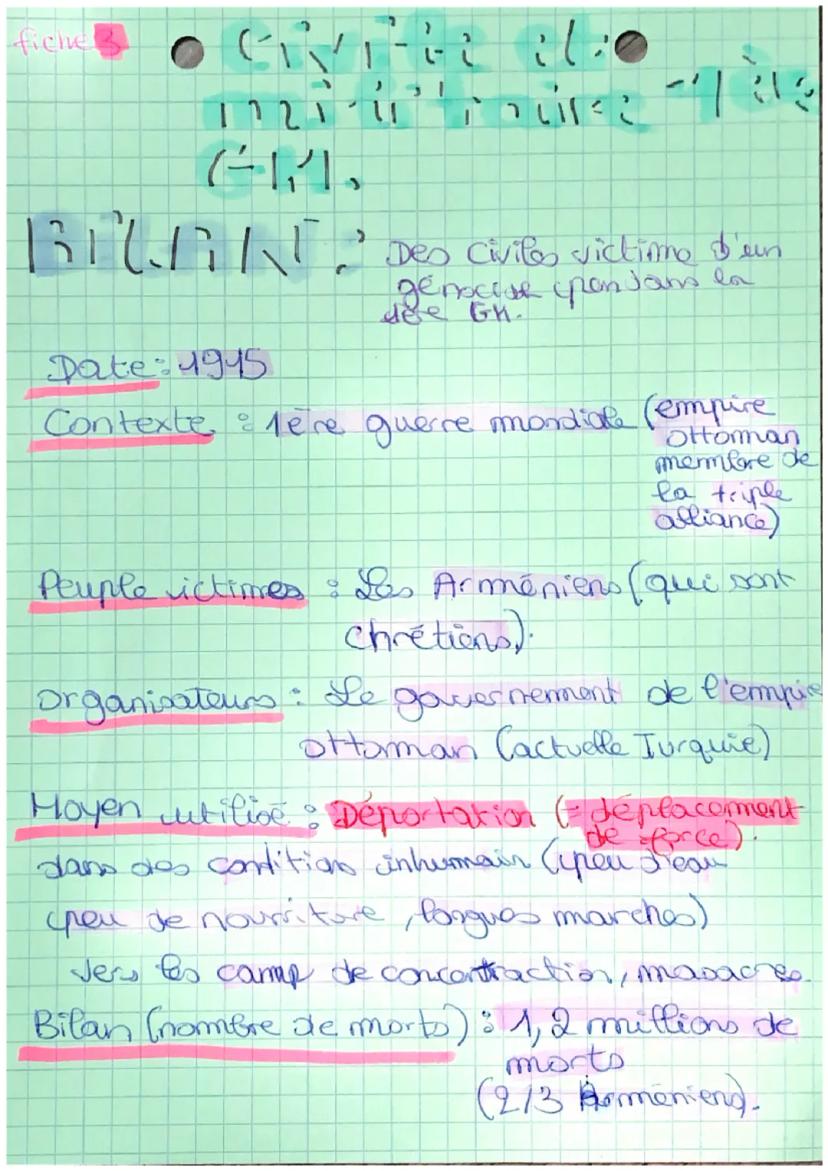 fiche 3
Civile et
militaire 1ère
G.M.
BILAN : Des Civiles victime d'un
génocide pendans la
1ère GM.
Date : 1915
Contexte : 1ère guerre mondiale (empire
ottoman
membre de
la triple
alliance)
Peuple victimes : Les Arméniens (qui sont
chrétiens).
organisateurs : Le gouvernement de l'empire
ottoman (actuelle Turquie)
Moyen utilisé : Déportation (= déplacement
de force).
dans des condition inhumain (peu d'eau
peu de nourriture, longues marches)
vers les camp de concentraction, masacres.
Bilan (nombre de morts) : 1,2 millions de
morts
(2/3 Arméniens).